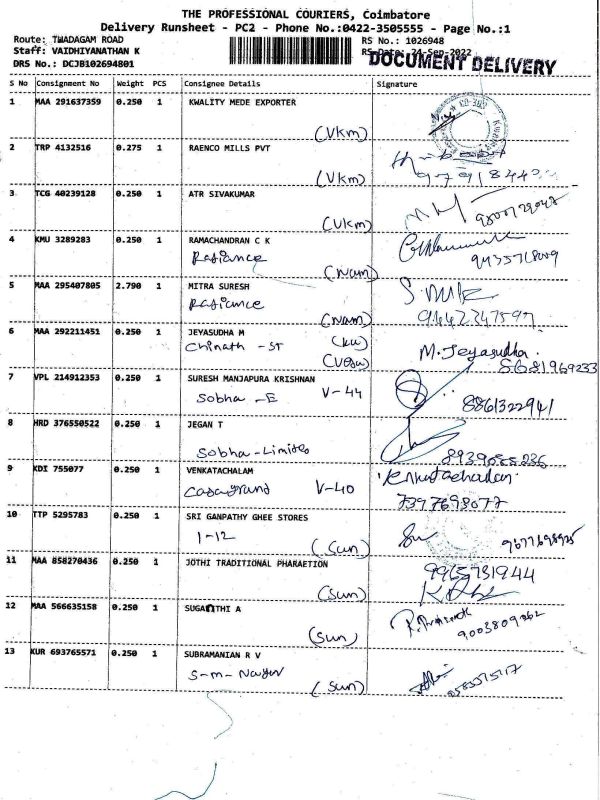 THE PROFESSIONAL COURIERS, Coimbatore
Delivery Runsheet - PC2 - Phone No.:0422-3505555 - Page No.:1
Route: THADAGAM ROAD RS No.: 1026948
Staff: VAIDHIYANATHAN K RS Date: 24-Sep-2022
DRS No.: DCJB102694801 DOCUMENT DELIVERY
S No Consignment No Weight PCS Consignee Details Signature
1 MAA 291637359 0.250 1 KWALITY MEDE EXPORTER
(Vkm)
2 TRP 4132516 0.275 1 RAENCO MILLS PVT
(Vkm)
3 TCG 40239128 0.250 1 ATR SIVAKUMAR
(Vkm)
4 KMU 3289283 0.250 1 RAMACHANDRAN C K
Radiance
(nam)
5 MAA 295407805 2.790 1 MITRA SURESH
Radiance
(nam) 9442347597
6 MAA 292211451 0.250 1 JEYASUDHA M
M.Jeyasudha.
8681969233
7 VPL 214912353 0.250 1 SURESH MANJAPURA KRISHNAN
Sobha - E V-44 8861322941
8 HRD 376550522 0.250 1 JEGAN T
Sobha - Limited
9 KDI 755077 0.250 1 VENKATACHALAM
Casagrand V-40 7397698077
10 TTP 5295783 0.250 1 SRI GANPATHY GHEE STORES
1-12
(Sun) 9677698975
11 MAA 858270436 0.250 1 JOTHI TRADITIONAL PHARAETION
9965731944
(Sun)
12 MAA 566635158 0.250 1 SUGANTHI A
(Sun) 9003809862
13 KUR 693765571 0.250 1 SUBRAMANIAN R V
S-m-Nayar
(Sun)